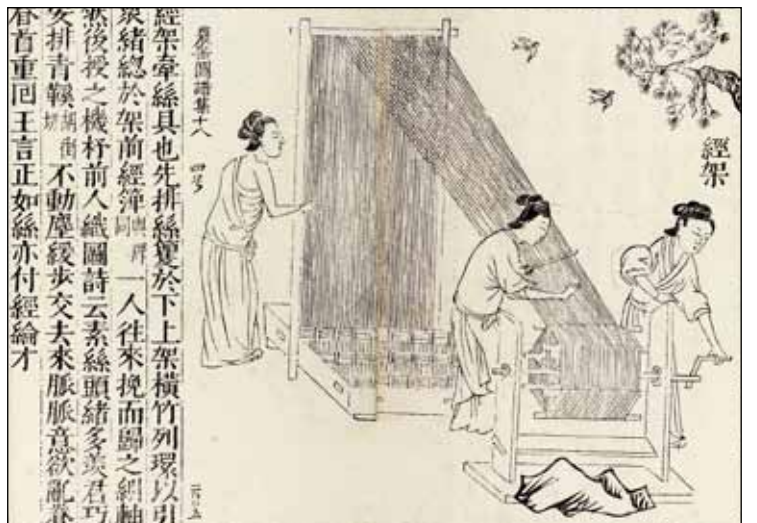 經架
圖譜集十八
經架牽絲具也先排絲籰於下上架橫竹列環以引
衆緒總於架前經簰與牌同一人往來挽而歸之紖軸
然後授之機杼前人織圖詩云素絲頭緒多羨君巧
安排青鞵胡街切不動塵緩步交去來脈脈意欲亂眷
眷首重囘王言正如絲亦付經綸才